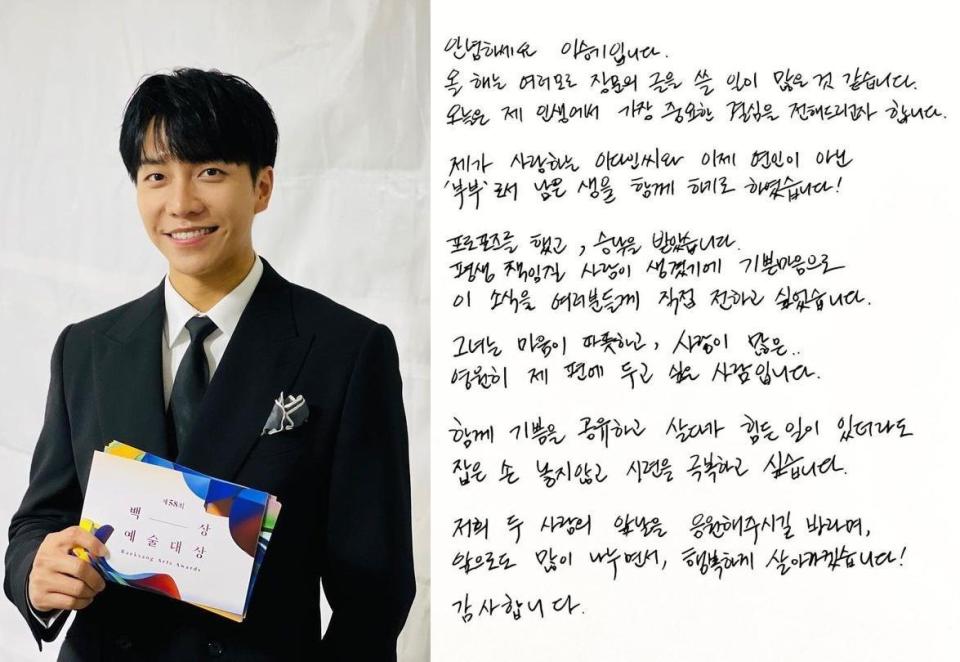 제58회
백 상
예술대상
Baeksang Arts Awards
안녕하세요 이승기입니다.
올 해는 여러모로 장문의 글을 쓸 일이 많은 것 같습니다.
오늘은 제 인생에서 가장 중요한 결심을 전해드리고자 합니다.
제가 사랑하는 이다인씨와 이제 연인이 아닌
'부부'로서 남은 생을 함께 하기로 하였습니다!
프로포즈를 했고, 승낙을 받았습니다.
평생 책임질 사람이 생겼기에 기쁜마음으로
이 소식을 여러분들께 직접 전하고 싶었습니다.
그녀는 마음이 따뜻하고, 사랑이 많은..
영원히 제 편에 두고 싶은 사람입니다.
함께 기쁨을 공유하고 살다가 힘든 일이 있더라도
잡은 손 놓지않고 시련을 극복하고 싶습니다.
저희 두 사람의 앞날을 응원해주시길 바라며,
앞으로도 많이 나누면서, 행복하게 살아가겠습니다!
감사합니다.